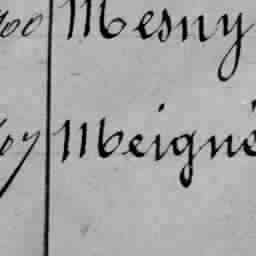 00 Mesny
67 Meigné